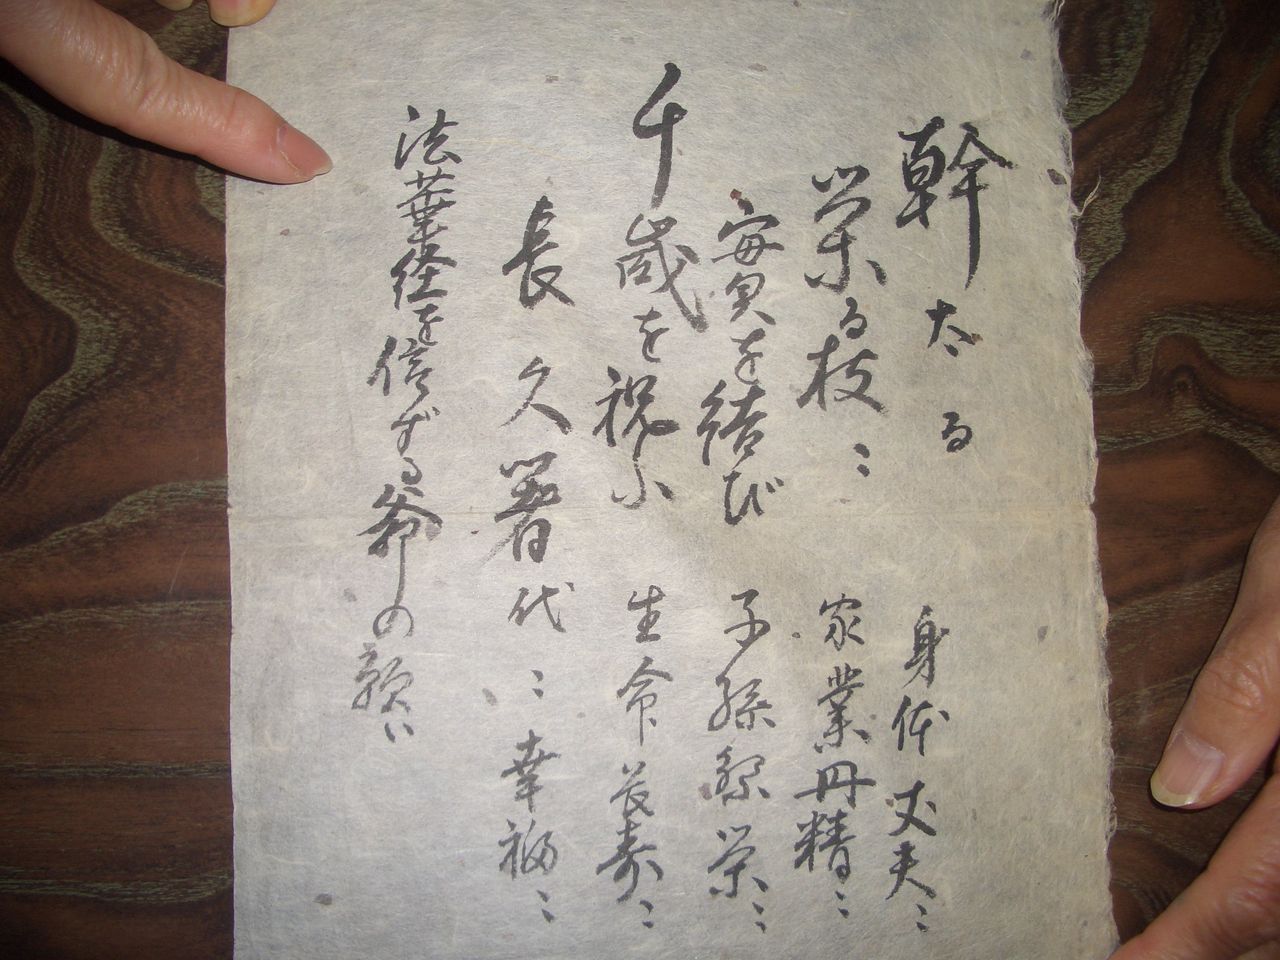 幹太る 身体丈夫ニ
栄る枝ニ 家業丹精ニ
實を結び 子孫繁栄ニ
千歳を祝ふ 生命長寿ニ
長久代ニ 幸福ニ
法華経を信ずる爺の願い